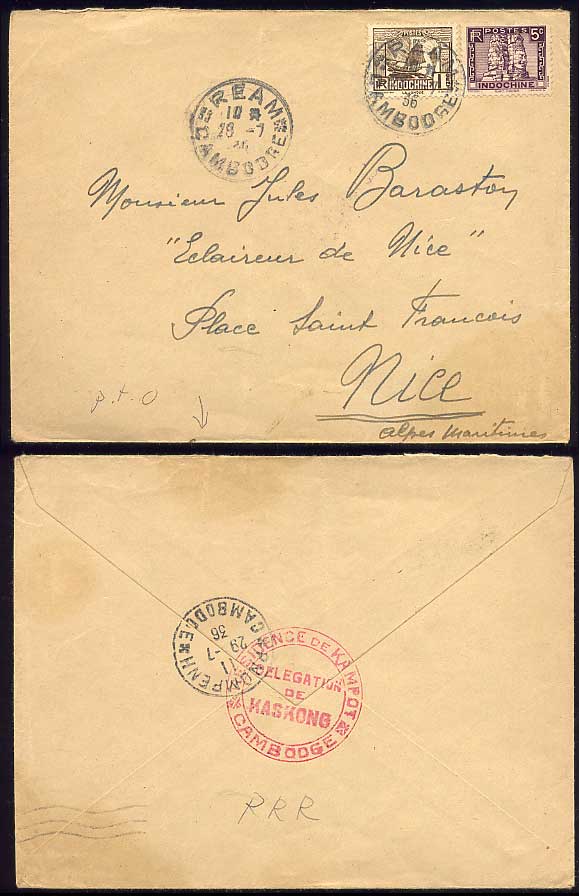 POSTES
INDOCHINE
1c
RF
POSTES 5c
INDOCHINE
REAM
10
28 -7
36
CAMBODGE
REAM
36
CAMBODGE
Monsieur Jules Baraston
"Eclaireur de Nice"
Place Saint Francois
Nice
Alpes Maritimes
P.T.O
PNOMPENH
11
29 -7
36
CAMBODGE
RESIDENCE DE KAMPOT
DELEGATION
DE
KASKONG
CAMBODGE
RRR